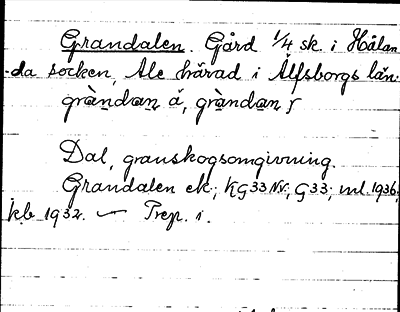 Grandalen. Gård 1/4 sk. i Hålan-
da socken, Ale härad i Älfsborgs län.
gràndan å,
Dal, granskogsomgivning.
Grandalen ek.; KG 33 NV; G 33; ml. 1936;
kb 1932. — Prep. i.